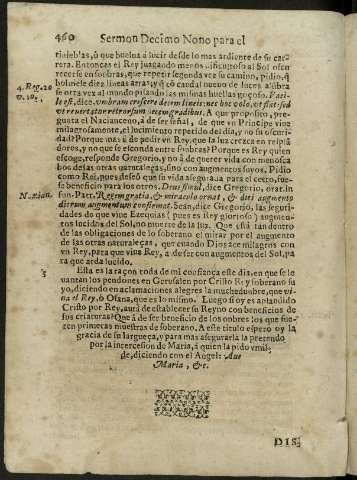 460 Sermon Decimo Nono para el
tinieblas, ò que buelua à lucir desde lo mas ardiente de su car-
rera. Entonces el Rey juzgando menos dificultoso al Sol oscu
recerse en sombras, que repetir segunda vez su camino, pidio, q̃
4. Reg. 20
v. 10.
bolviese diez lineas atras; y q̃ cõ caudal nuevo de luces
se otra vez al mundo pisando las mismas huellas goçoso. Faci-
le est, dice, umbram crescere decem lineis: nec hoc volo, ut fiat: sed
ut revertatur retrorsum decem gradibus. A que proposito, pre-
gunta el Nacianceno, à de ser señal, de que vn Principe vive
milagrosamente, el lucimiento repetido del dia, y no su oscuri-
dad? Porque mas à de pedir vn Rey, que la luz crezca en resplã
dores, y no que se esconda entre sombras? Porque es Rey quien
escoge, responde Gregorio, y no à de querer vida con menosca
bos de las otras naturaleças, sino con augmentos suyos. Pidio
como Rei, pues deseò que su vida asegurada para el cetro, fue-
se beneficio para los otros. Deus simul, dice Gregorio, orat. in
Nazian.
fun. Patr. Regem gratia, & miraculo ornat, & diei augmento
dierum augmentum confirmat. Seàn, dice Gregorio, las seguri-
dades de que vive Ezequias (pues es Rey glorioso) augmen-
tos lucidos del Sol, no muerte de la luz. Que està tan dentro
de las obligaciones de lo soberano el mirar por el augmento
de las otras naturaleças, que quando Dios ace milagros con
vn Rey, para que viva Rey, à de ser con augmentos del Sol, pa
ra que arda lucido.
3
Esta es la raçon toda de mi confiança este dia, en que se le
vantan los pendones en Gerusalen por Cristo Rey soberano su
yo, diciendo en aclamaciones alegres la muchedumbre, que vi-
va el Rey, ò Osana, que es lo mismo. Luego si oy es aplaudido
Cristo por Rey, aurà de establecer su Reyno con beneficios de
sus criaturas? Que à de ser beneficio de los onbres lo que fue-
ren primeras muestras de soberano. A este titulo espero oy la
gracia de su largueça, y para mas asegurarla la pretendo
por la intercesion de Maria, à quien la pido vmil-
de, diciendo con el Angel: Ave
Maria, &c.
DIS-